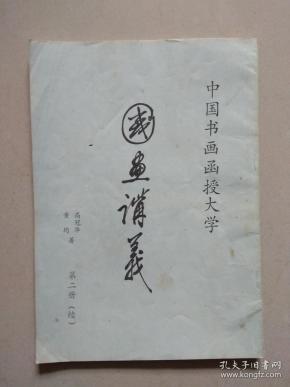 中国书画函授大学
国画讲義
高冠华
黄均 著
第二册(续)
孔夫子旧书网